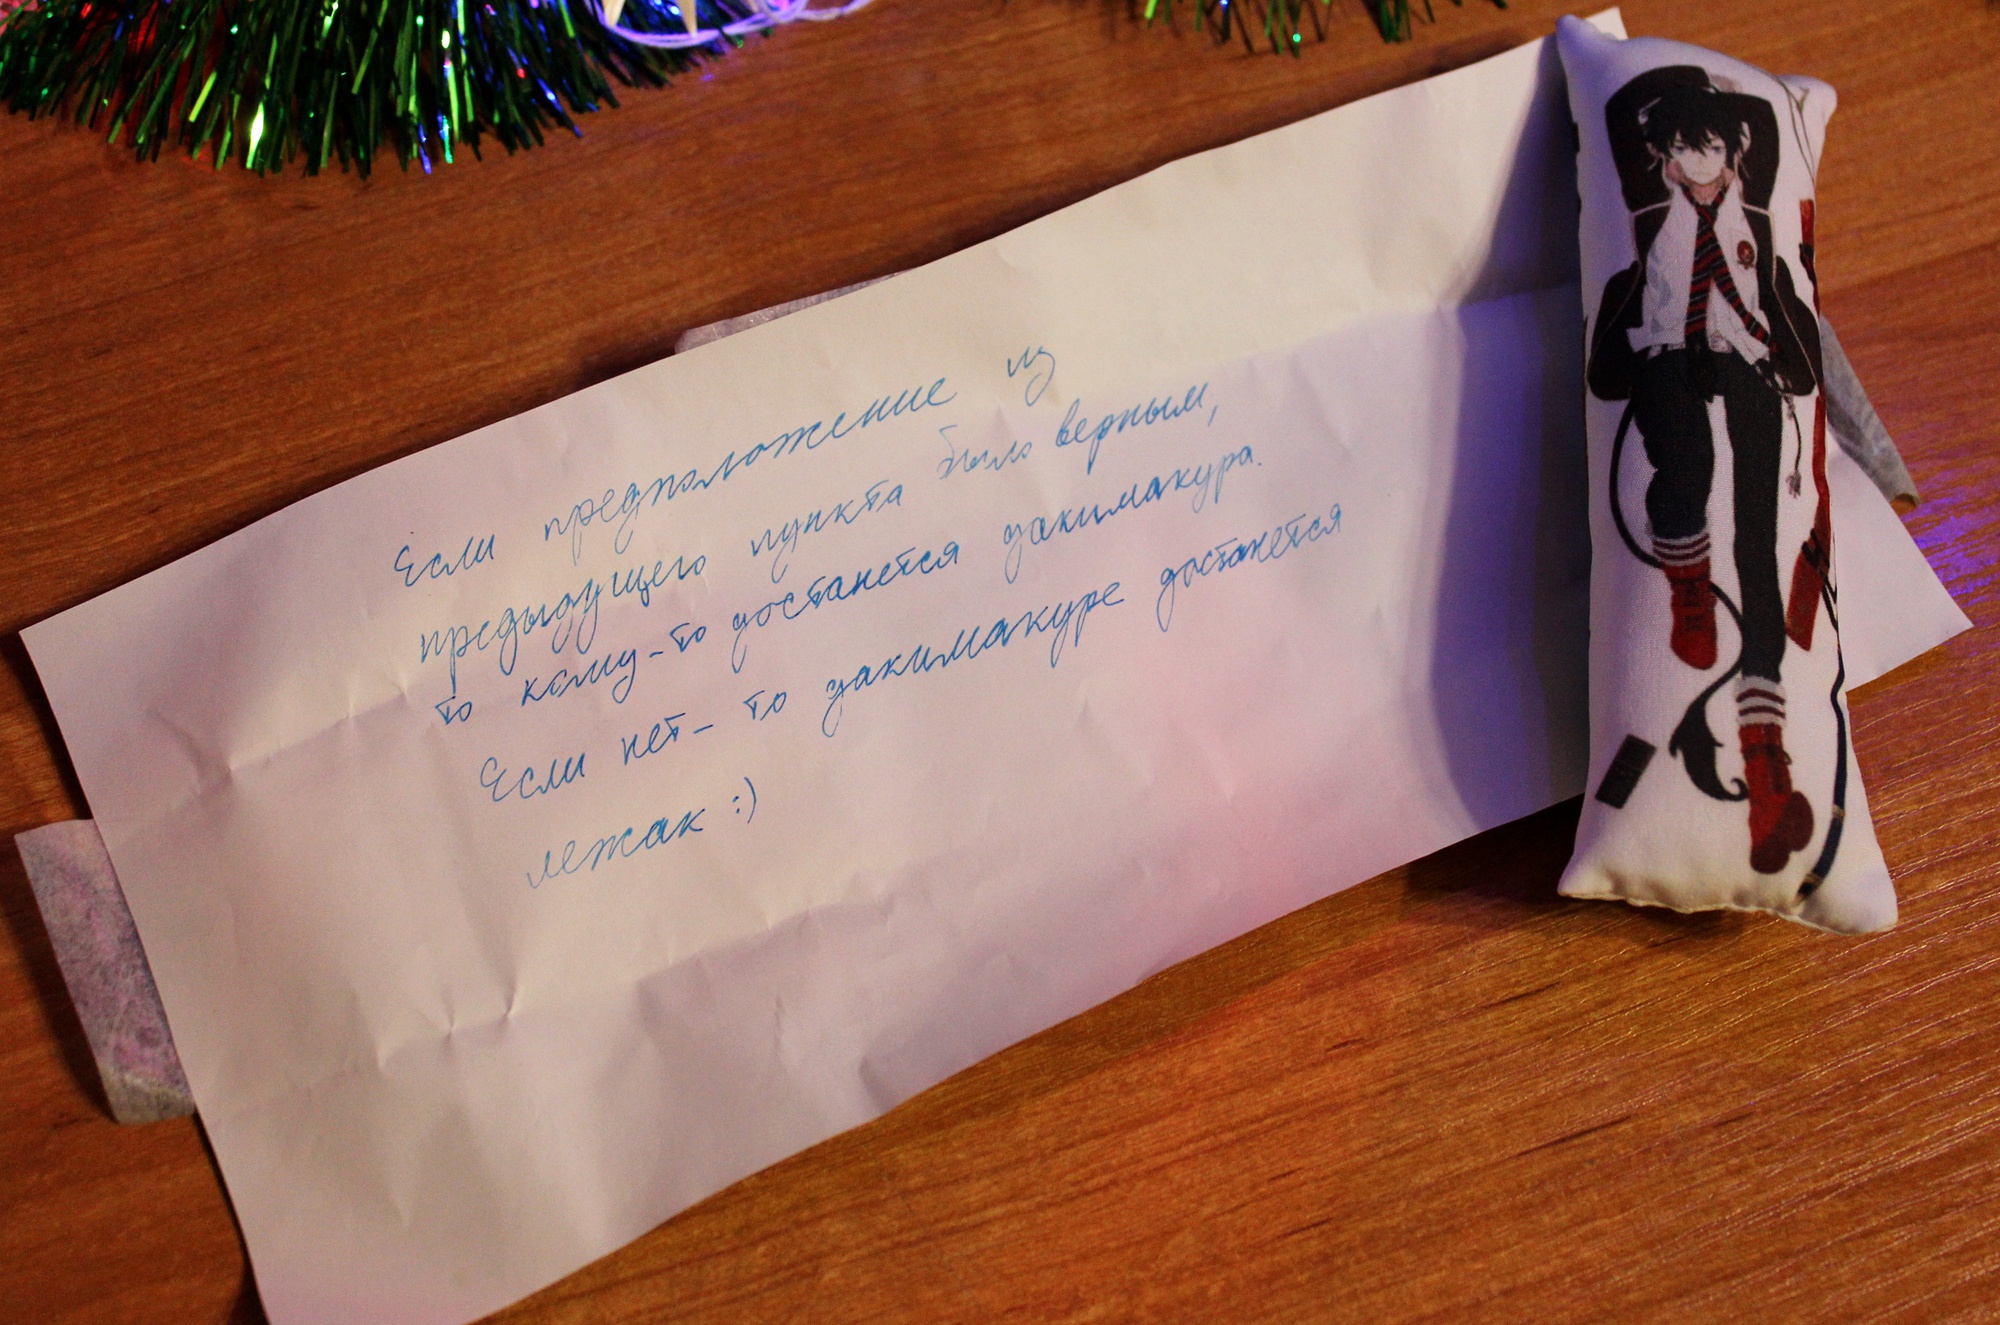 Если предположение из
предыдущего пункта было верным,
то кому-то достанется дакимакура.
Если нет - то дакимакуре достанется
лежак :)